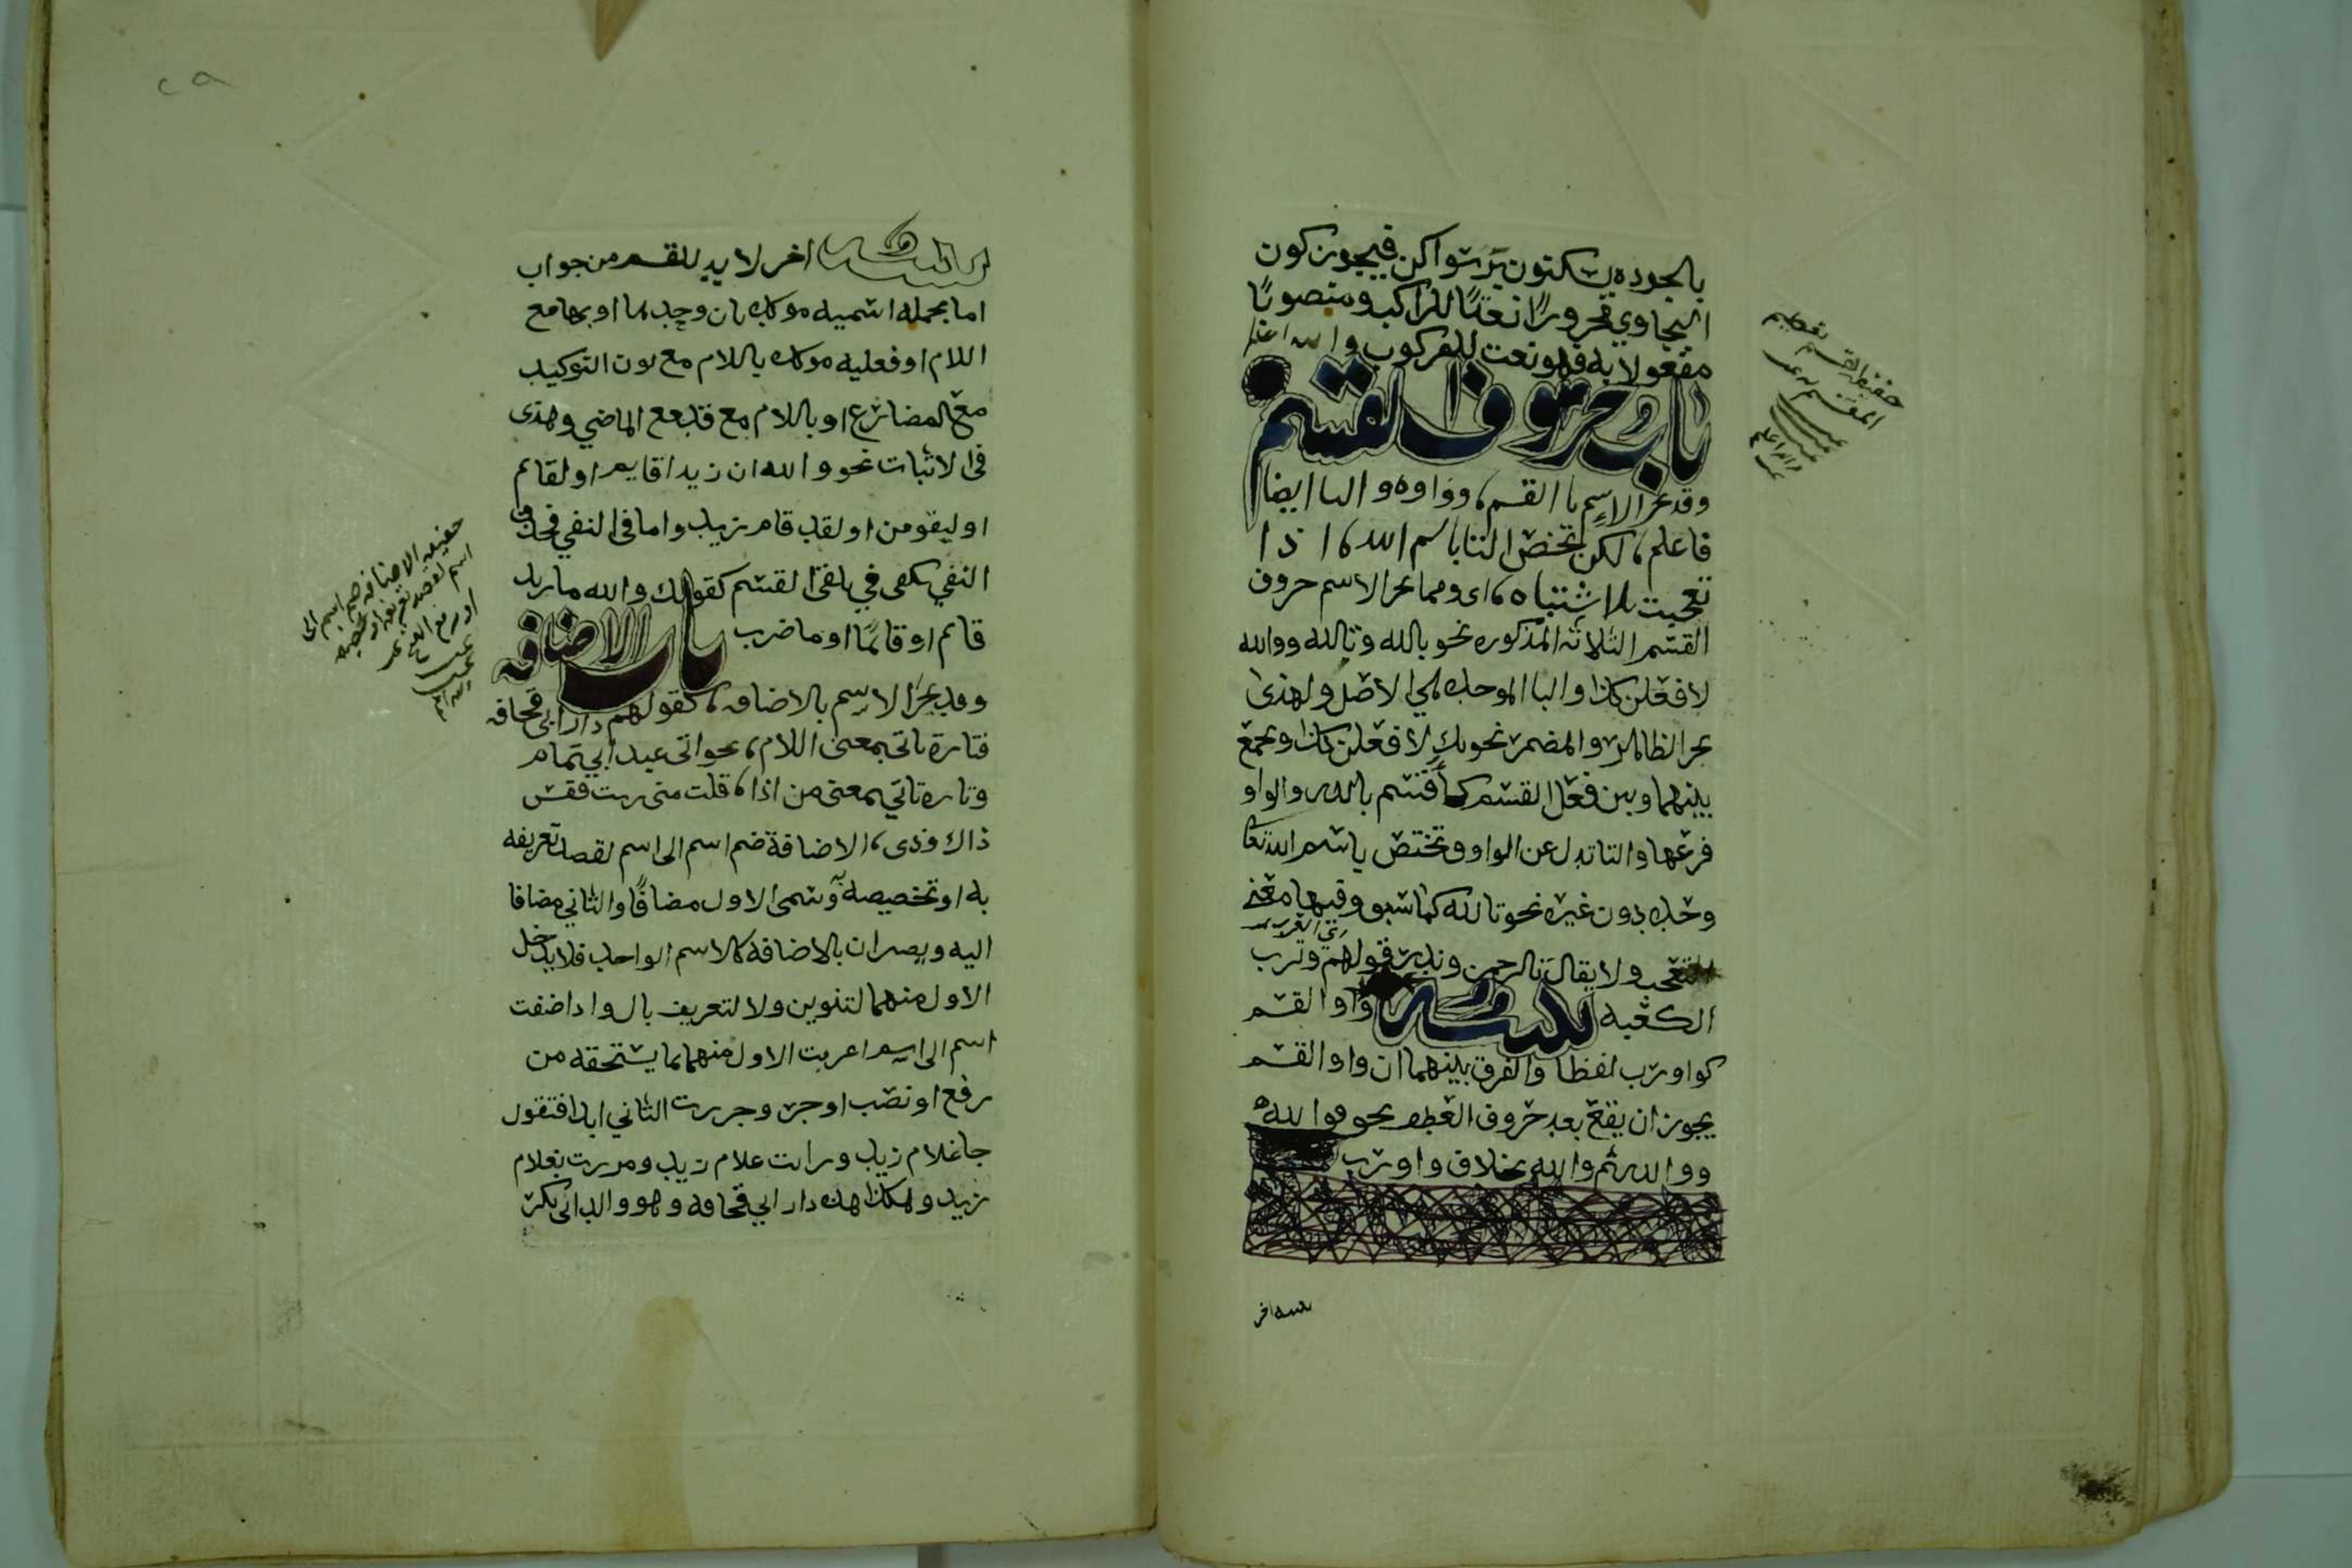 بالجوده يسكنون بر سواكن فيجوز كون
البجاوي مجرورًا نعتًا للراكب ومنصوبًا
مفعولا به فهو نعت للمركوب والله اعلم
باب حروف القسم
وقد يجر الاسم با القسم، وواوه والبا ايضا
فاعلم، لكن تخص التا باسم الله، اذا
تعجبت بلا اشتباه، اى ومما يجر الاسم حروف
القسم الثلاثه المذكوره نحو بالله وتالله ووالله
لافعلن كذا والبا الموحده هي الاصل ولهذى
يجر الظاهر والمضمر نحو بك لافعلن كذا ويجمع
بينهما وبين فعل القسم كأقسم بالله والواو
فرعها والتا تبدل عن الواو وتختص باسم الله تعا
وحده دون غيره نحو تالله كما سبق وفيها معنى
التعجب ولا يقال تالرحمن وندر قولهم وترب
الكعبه تنبيه واو القسم
كواو رب لفظا والفرق بينهما ان واو القسم
يجوز ان يقع بعد حروف العطف نحو فوالله
ووالله ثم والله بخلاف واو رب
تنبيه اخر
حقيقة القسم تعظيم
المقسم به
والله اعلم
٢٩
تنبيه اخر لا بد للقسم من جواب
اما بجمله اسميه موكده بان وحدها او بها مع
اللام او فعليه موكده باللام مع نون التوكيد
مع المضارع او باللام مع قد مع الماضي وهذى
فى الاثبات نحو والله ان زيدا قايم او لقائم
او ليقومن او لقد قام زيد واما فى النفي فحرف
النفي يكفى في تلقى القسم كقولك والله ما زيد
قائم او قائمًا او ما ضرب
باب الاضافه
وقد يجر الاسم بالاضافه، كقولهم دار ابى قحافه
فتارة تاتى بمعنى اللام، نحو اتى عبد ابي تمام
وتارة تاتي بمعنى من اذا، قلت منى زيت فقس
ذاك وذى، الاضافة ضم اسم الى اسم لقصد تعريفه
به او تخصيصه وسمى الاول مضافًا والثاني مضافا
اليه ويصيران بالاضافه كالاسم الواحد فلا يدخل
الاول منهما لتنوين ولا لتعريف بال واذا اضفت
اسم الى اسم اعربت الاول منهما بما يستحقه من
رفع او نصب او جر وجررت الثاني ابدا فتقول
جا غلام زيد ورايت غلام زيد ومررت بغلام
زيد وهكذا هذه دار ابي قحافه وهو والد ابى بكر
حقيقة الاضافه ضم اسم الى
اسم لقصد تعريفه او تخصيصه